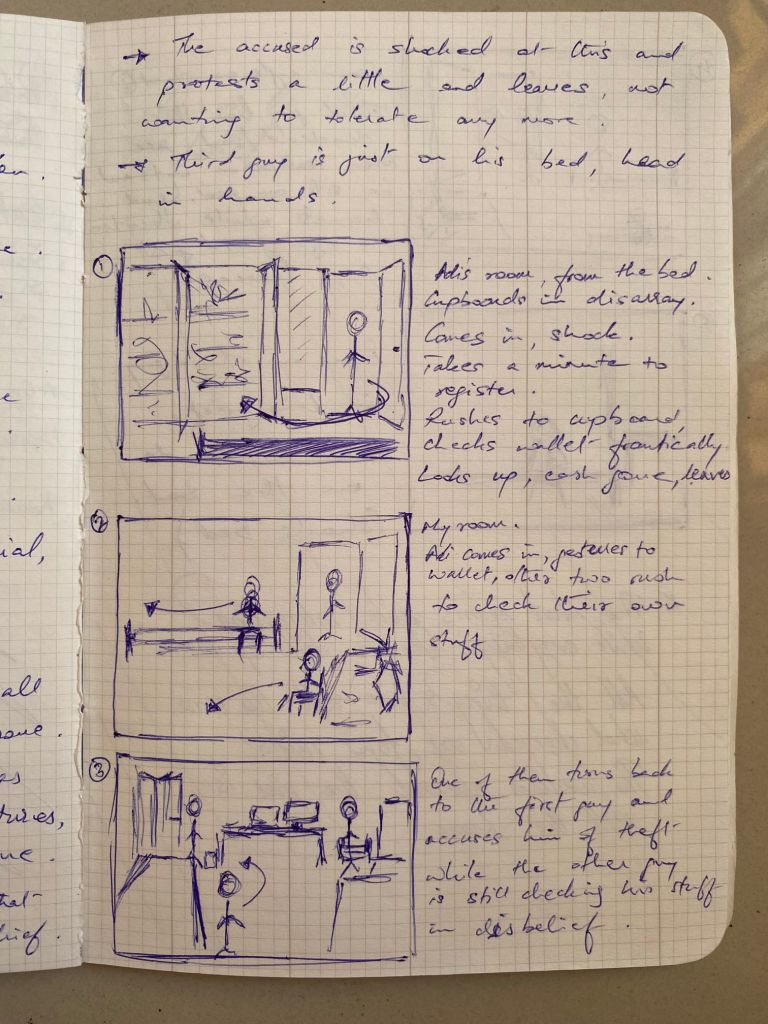 → The accused is shocked at this and
protests a little and leaves, not
wanting to tolerate any more.
→ Third guy is just on his bed, head
in hands.
① Adi's room, from the bed.
Cupboards in disarray.
Comes in, shock.
Takes a minute to
register.
Rushes to cupboard,
checks wallet frantically.
Looks up, cash gone, leaves
② My room.
Adi comes in, gestures to
wallet, other two rush
to check their own
stuff
③ One of them turns back
to the first guy and
accuses him of theft
while the other guy
is still checking his stuff
in disbelief.
ial,
all
one.
as
tures,
me.
hat
hief.